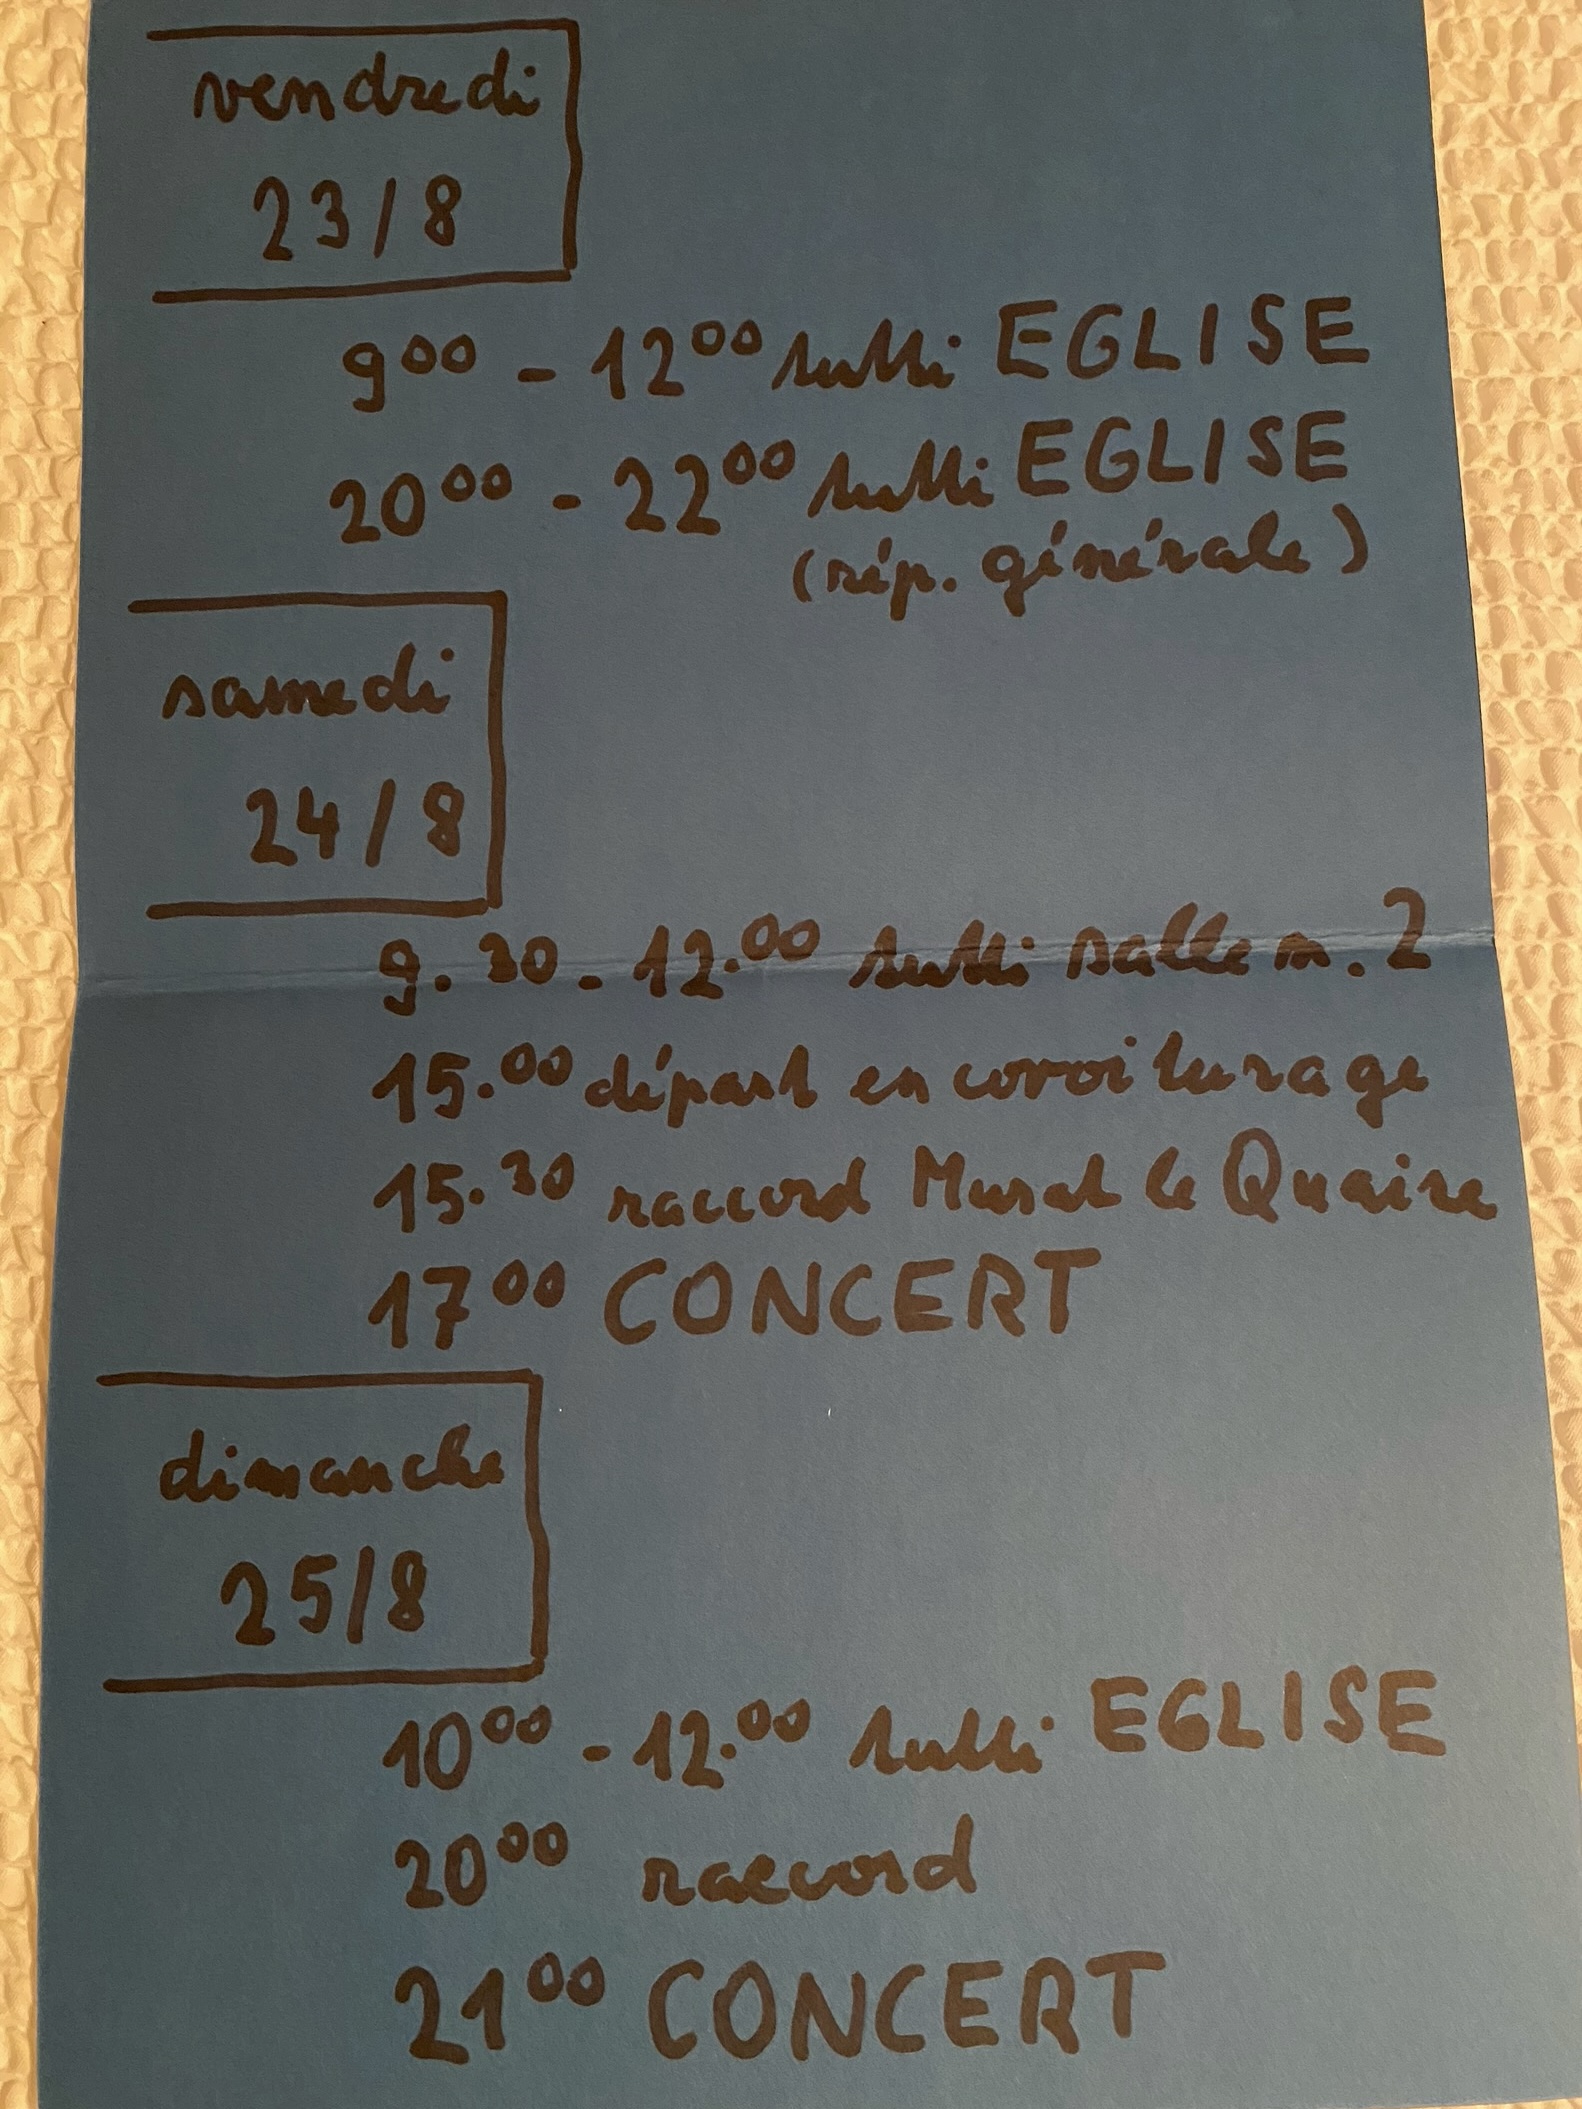 vendredi
23/8
9⁰⁰ - 12⁰⁰ tutti EGLISE
20⁰⁰ - 22⁰⁰ tutti EGLISE
(rép. générale)
samedi
24/8
9.30 - 12.⁰⁰ tutti salle n. 2
15.⁰⁰ départ en covoiturage
15.³⁰ raccord Murat le Quaire
17⁰⁰ CONCERT
dimanche
25/8
10⁰⁰ - 12.⁰⁰ tutti EGLISE
20⁰⁰ raccord
21⁰⁰ CONCERT